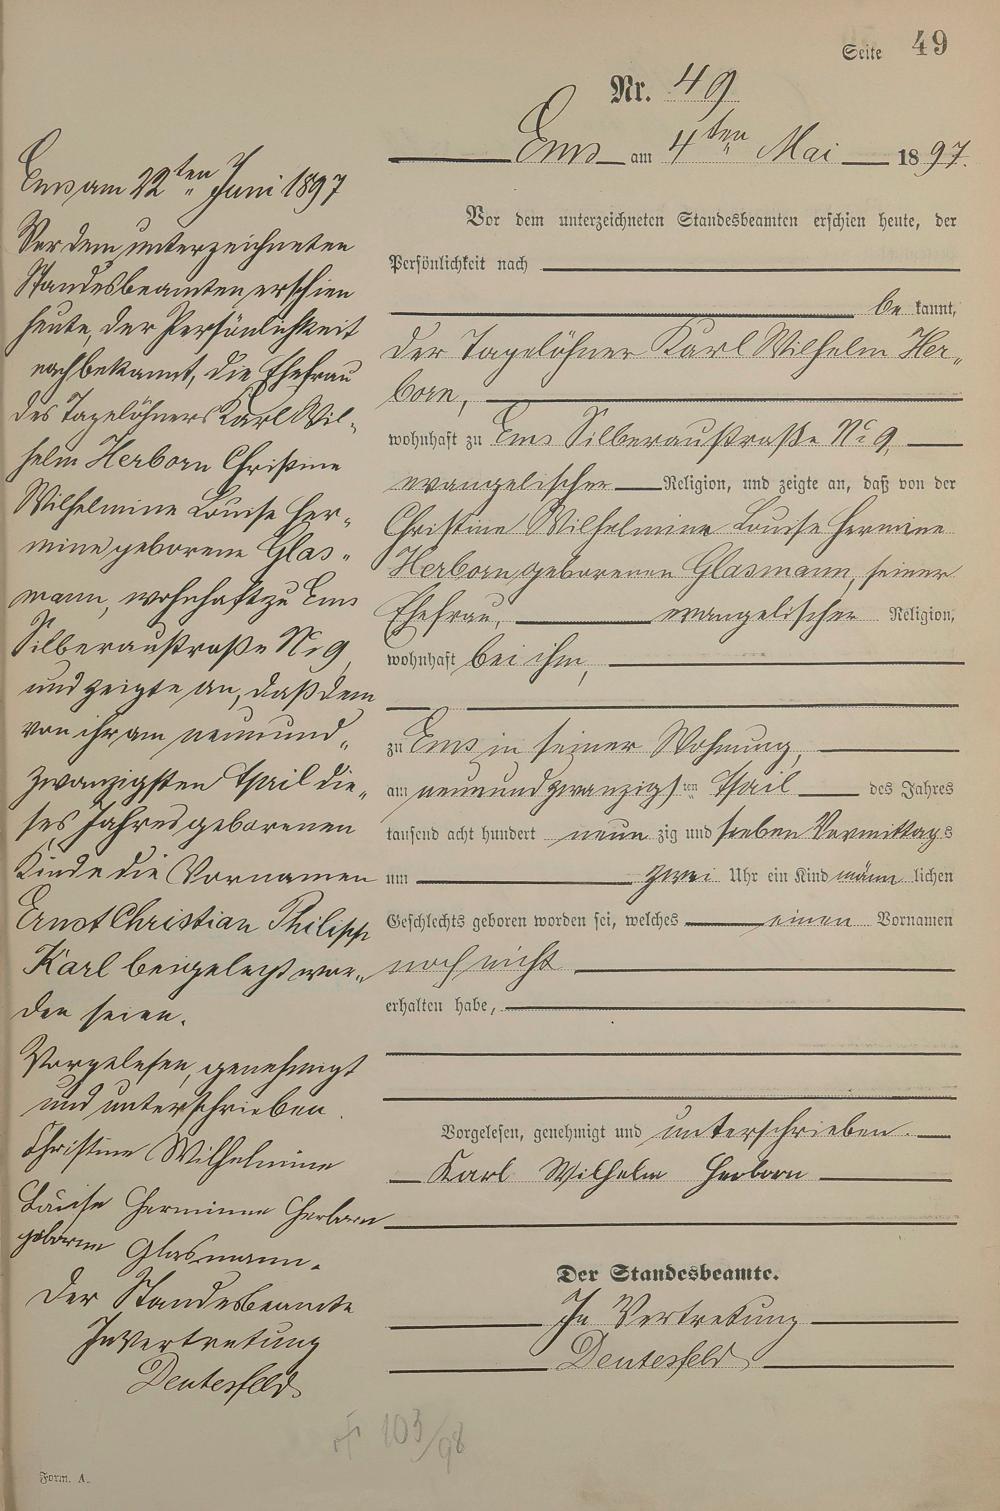 Seite 49
Nr. 49
Ems am 4ten Mai 1897.
Vor dem unterzeichneten Standesbeamten erschien heute, der
Persönlichkeit nach
bekannt,
der Tagelöhner Karl Wilhelm Her-
born,
wohnhaft zu Ems Silberaustraße No 9,
evangelischer Religion, und zeigte an, daß von der
Christine Wilhelmine Louise Hermine
Herborn, geborenen Glasmann, seiner
Ehefrau, evangelischer Religion,
wohnhaft bei ihm,
zu Ems in seiner Wohnung,
am neunundzwanzigsten April des Jahres
tausend acht hundert neunzig und sieben Vormittags
um zwei Uhr ein Kind männlichen
Geschlechts geboren worden sei, welches einen Vornamen
noch nicht
erhalten habe,
Vorgelesen, genehmigt und unterschrieben.
Karl Wilhelm Herborn
Der Standesbeamte.
In Vertretung
Deutesfeld
Ems am 22ten Juni 1897
Vor dem unterzeichneten
Standesbeamten erschien
heute, der Persönlichkeit
nach bekannt, die Ehefrau
des Tagelöhners Karl Wil-
helm Herborn Christine
Wilhelmine Louise Her-
mine geborene Glas-
mann, wohnhaft zu Ems
Silberaustraße No 9,
und zeigte an, daß dem
von ihr am neunund-
zwanzigsten April die-
ses Jahres geborenen
Kinde die Vornamen
Ernst Christian Philipp
Karl beigelegt wor-
den seien.
Vorgelesen, genehmigt
und unterschrieben.
Christine Wilhelmine
Lauise Herminne Herborn
geborne Glasmann.
Der Standesbeamte
In Vertretung
Deutesfeld
103/98
Form. A.